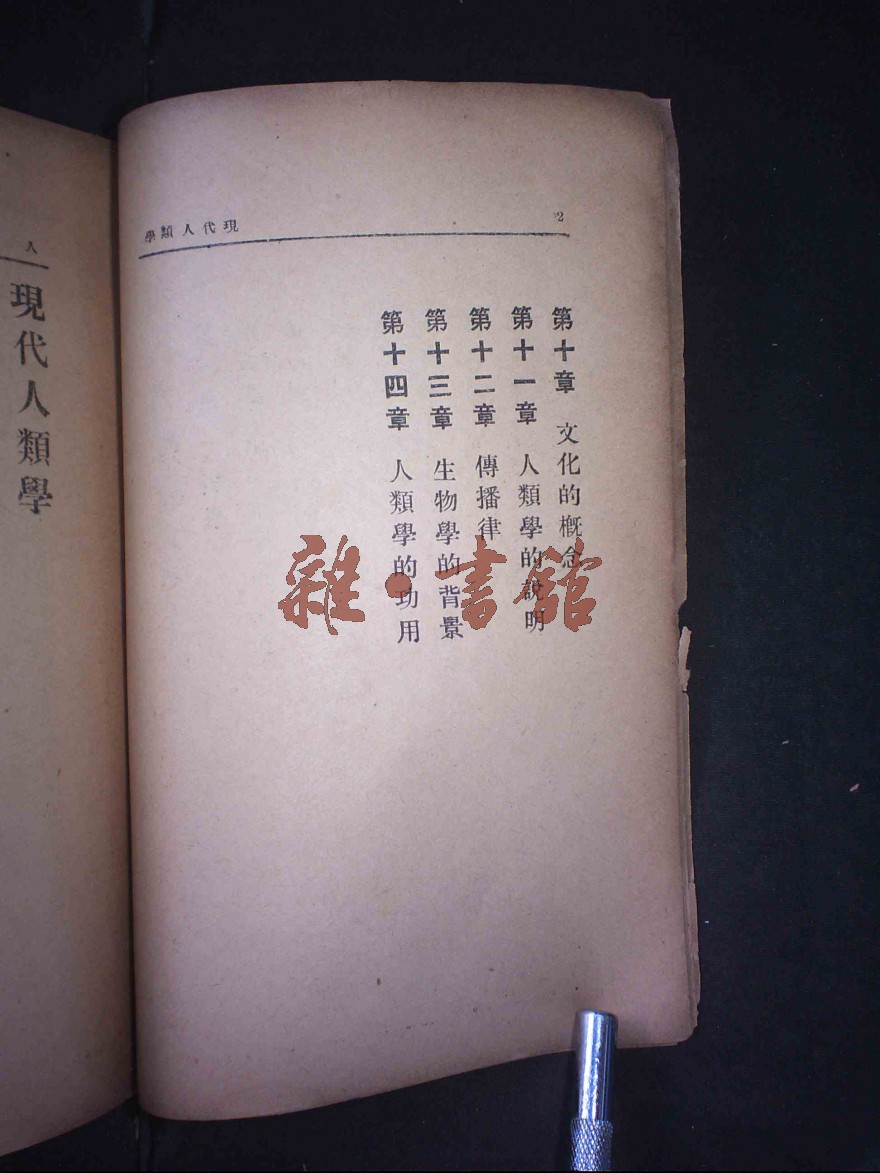 2
現代人類學
第十章 文化的概念
第十一章 人類學的說明
第十二章 傳播律
第十三章 生物學的背景
第十四章 人類學的功用
人
現代人類學
雜·書館